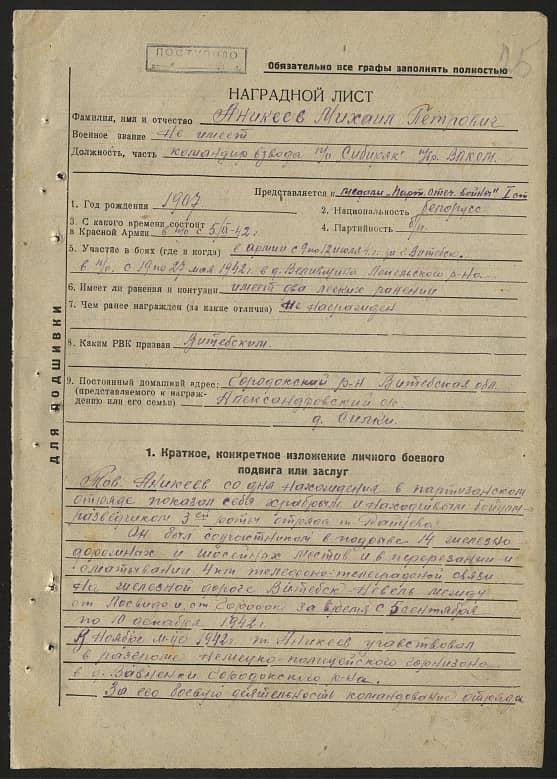 ПОСТУПИЛО
Обязательно все графы заполнять полностью
НАГРАДНОЙ ЛИСТ
Фамилия, имя и отчество Аникеев Михаил Петрович
Военное звание Не имеет
Должность, часть командир взвода п/о "Сибиряк"
Представляется к медали "Парт. отеч. войны" I ст
1. Год рождения 1907
2. Национальность белорусс
3. С какого времени состоит
в Красной Армии в п/о с 5/IX-42 г.
4. Партийность
5. Участие в боях (где и когда) в армии с 9 по 12 июля 41 г. Витебск.
в п/о. с 19 по 23 мая 1942 г. в д. Лепельского р-на
6. Имеет ли ранения и контузии имеет два легких ранения
7. Чем ранее награжден (за какие отличия) Не награжден
8. Каким РВК призван Витебским.
9. Постоянный домашний адрес: Сородокский р-н Витебская обл.
(представляемого к награж-
дению или его семьи) Александровский с/с
д.
ДЛЯ ПОДШИВКИ
1. Краткое, конкретное изложение личного боевого
подвига или заслуг
Тов. Аникеев со дня нахождения в партизанском
отряде показал себя храбрым и находчивым бойцом-
разведчиком 3ей роты отряда
Он был соучастником в подрыве 14 железно
дорожных и шоссейных мостов и в перерезании и
сматывании 4 км телефоно-телеграфной связи
На железной дороге Витебск-Невель между
ст Лосвида и ст. Сородок за время с 5 сентября
по 10 декабря 1942 г.
В Ноябре м-це 1942 г. т. Аникеев учавствовал
в разгроме немецко-полицейского гарнизона
в д. Сородокского р-на.
За его боевую деятельность командование отряда